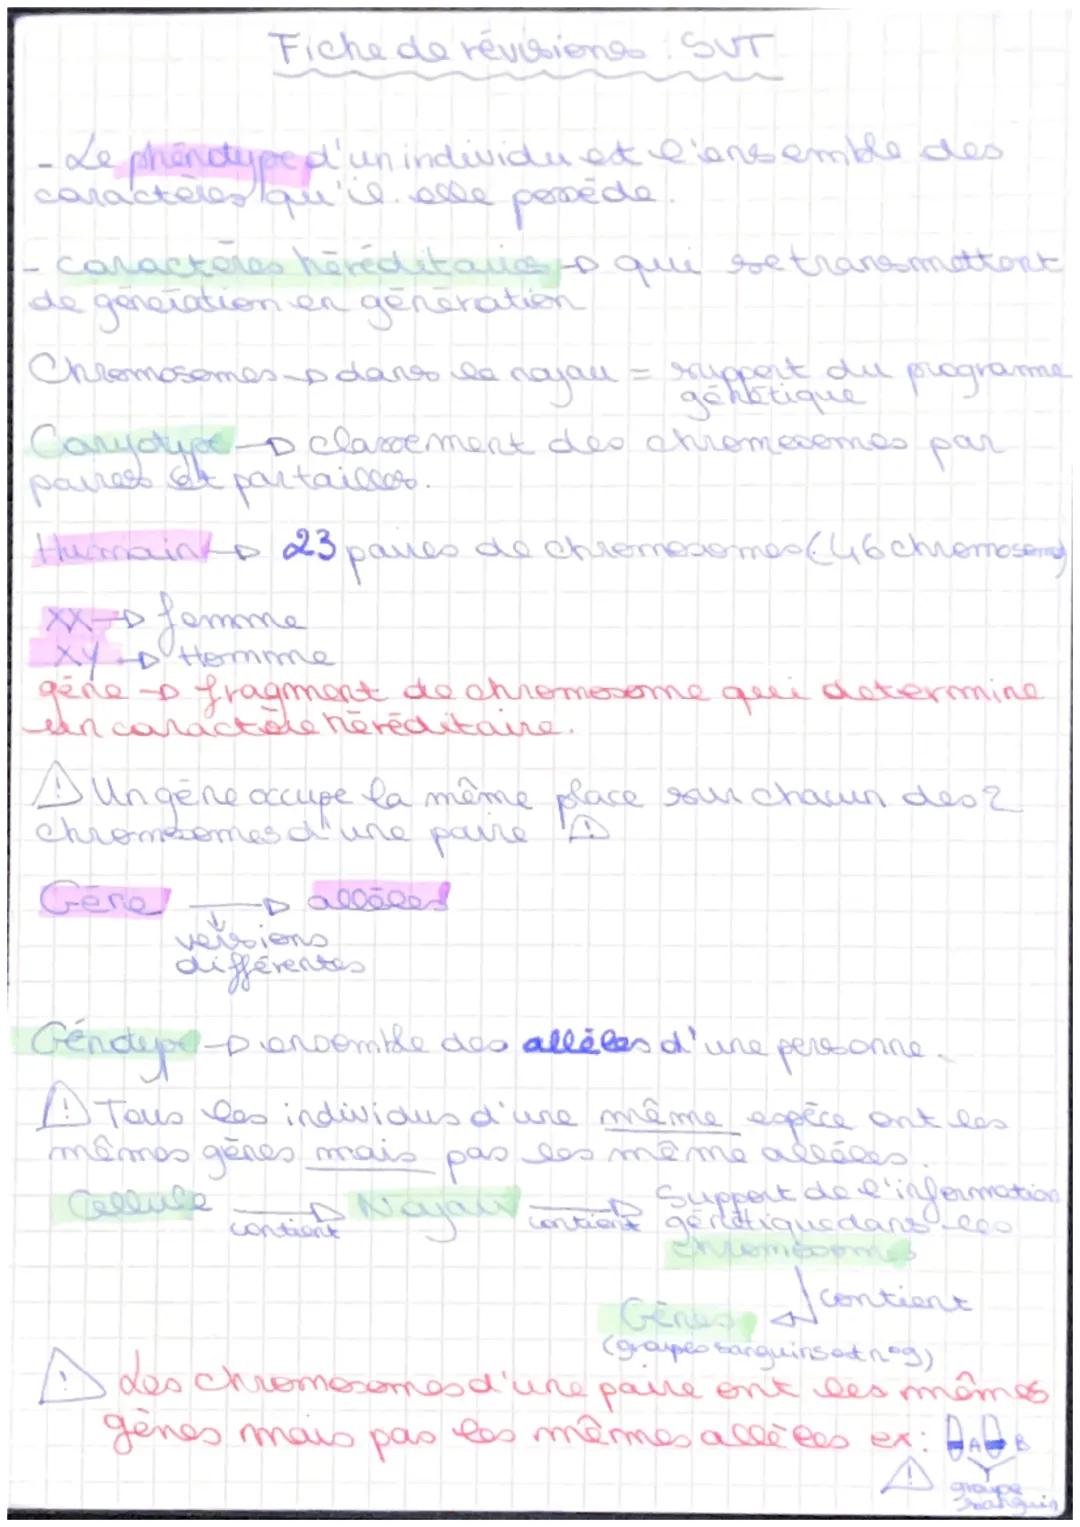 Fiche de révisions : SVT
- Le phénotype d'un individu est l'ensemble des
caractères qu'il.elle possède.
- caractères héréditaires → qui se transmettent
de génération en génération
Chromosomes → dans le noyau = support du programme
génétique
Caryotype → classement des chromosomes par
paires et par tailles.
Humain → 23 paires de chromosomes (46 chromosomes)
XX → femme
XY → Homme
gène → fragment de chromosome qui determine
un caractère héréditaire.
⚠ Un gène occupe la même place sur chacun des 2
chromosomes d'une paire ⚠
Gène → allèles
versions
différentes
Génotype → ensemble des allèles d'une personne.
⚠ Tous les individus d'une même espèce ont les
mêmes gènes mais pas les même allèles.
Cellule → Noyau → Support de l'information
contient contient génétique dans les
chromosomes
contient
Gènes
(groupes sanguins et n°9)
⚠ Les chromosomes d'une paire ont les mêmes
gènes mais pas les mêmes allèles ex: A B
⚠ groupe
sanguin